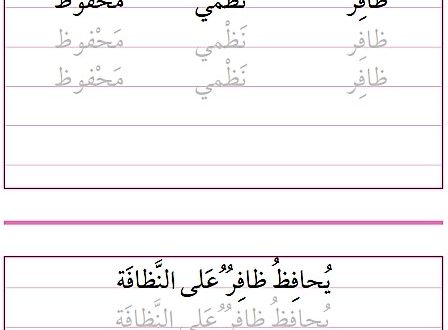 ظافِر نَظْمي مَحْفوظ
ظافِر نَظْمي مَحْفوظ
ظافِر نَظْمي مَحْفوظ
يُحافِظُ ظافِرٌ عَلى النَّظافَة
يُحافِظُ ظافِرٌ عَلى النَّظافَة